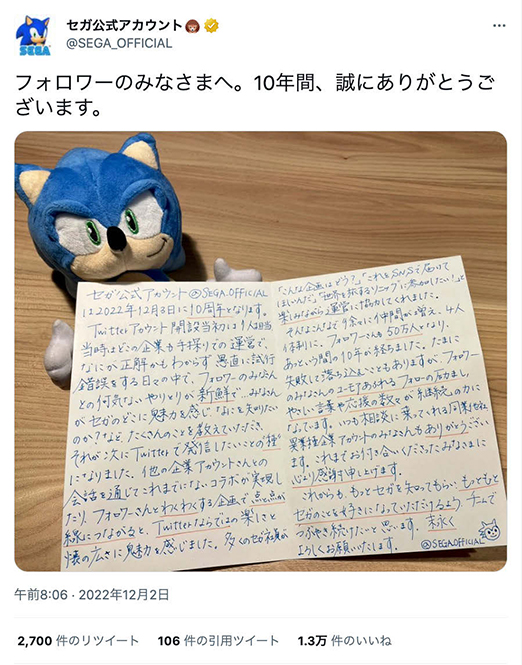 セガ公式アカウント
@SEGA_OFFICIAL
SEGA
フォロワーのみなさまへ。10年間、誠にありがとうご
ざいます。
セガ公式アカウント@SEGA_OFFICIAL
は2022年12月3日に10周年となります。
Twitterアカウント開設当初は1人担当
当時はどこの企業も手探りでの運営で、
なにが正解かもわからず愚直に試行
錯誤をする日々の中で、フォロワーのみなさん
との何気ないやりとりが新鮮で…みなさん
がセガのどこに魅力を感じ、なにを知りたい
のか?など、たくさんのことを教えていただき、
それが次にTwitterで発信したいことの種
になりました。他の企業アカウントさんとの
会話を通じてこれまでにないコラボが実現し
たり、フォロワーさんとわくわくする企画で点と点が
線につながると、Twitterならではの楽しさと
懐の広さに魅力を感じました。多くのセガ社員が
「こんな企画はどう?」「これをSNSで届けて
ほしいんだ」「世界を旅するソニックに参加したい!」と
楽しみながら運営に協力してくれました。
そんなこんなで少しずつ仲間が増え、4人
体制に、フォロワーさんも50万人となり、
あっという間の10年が経ちました。たまに
失敗して落ち込むこともありますが、フォロワー
のみなさんのユーモアあふれるフォローのおかげ、
やさしい言葉や応援の数々が「継続」の力に
なっています。いつも相談に乗ってくれる同業他社
異業種企業アカウントのみなさんもありがとうござい
ます。これまでお付き合いくださったみなさまに
心より感謝申し上げます。
これからも、もっとセガを知ってもらい、もっともっと
セガのことを好きになっていただけるよう、チームで
つぶやき続けたいと思います。末永く
よろしくお願いいたします。
@SEGA_OFFICIAL
午前8:06 · 2022年12月2日
2,700 件のリツイート 106 件の引用ツイート 1.3万 件のいいね